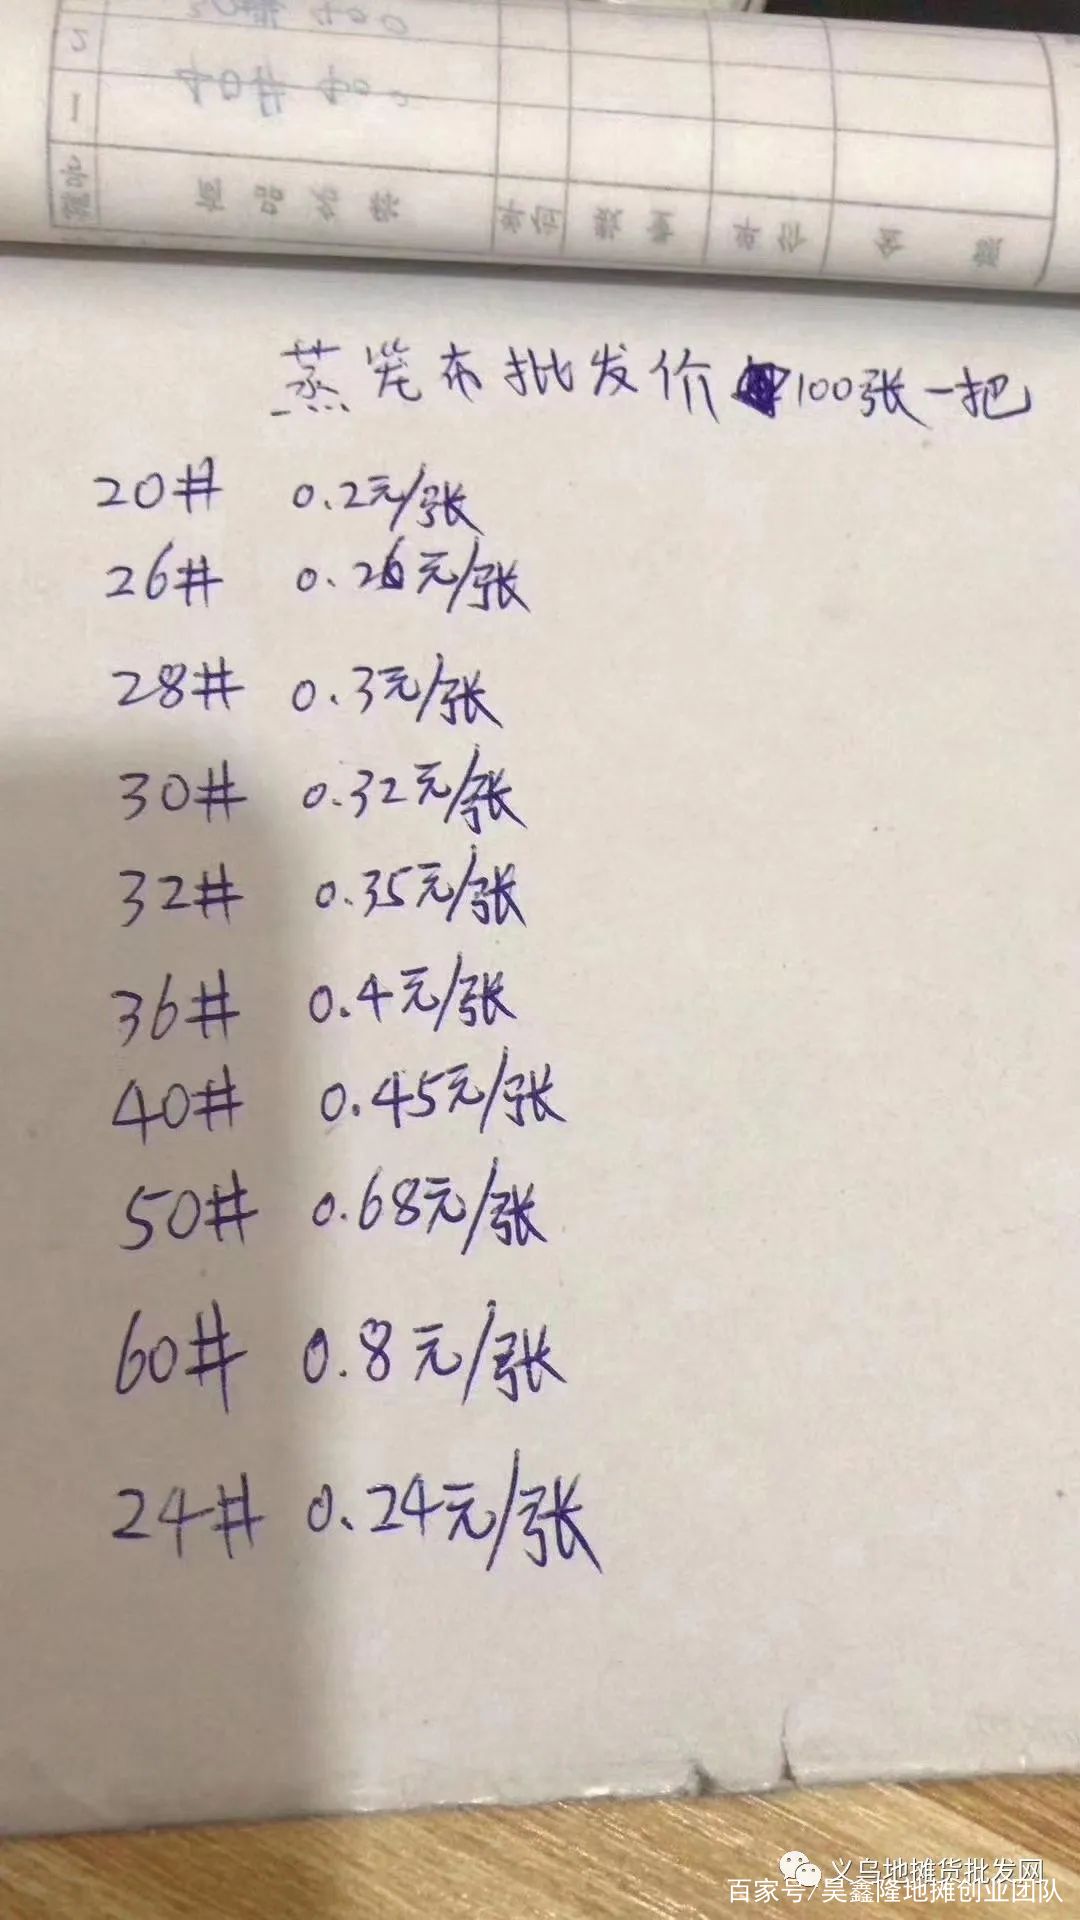 40#
蒸笼布批发价 100张一把
20# 0.2元/张
26# 0.26元/张
28# 0.3元/张
30# 0.32元/张
32# 0.35元/张
36# 0.4元/张
40# 0.45元/张
50# 0.68元/张
60# 0.8元/张
24# 0.24元/张
义乌地摊货批发网
百家号/昊鑫隆地摊创业团队